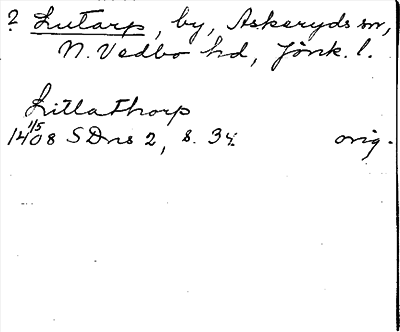 ? Lutarp, by, Askeryds sn,
N. Vedbo hd, Jönk. l.
Litlathorp
14 1/5 08 SDns 2, s. 34 orig.